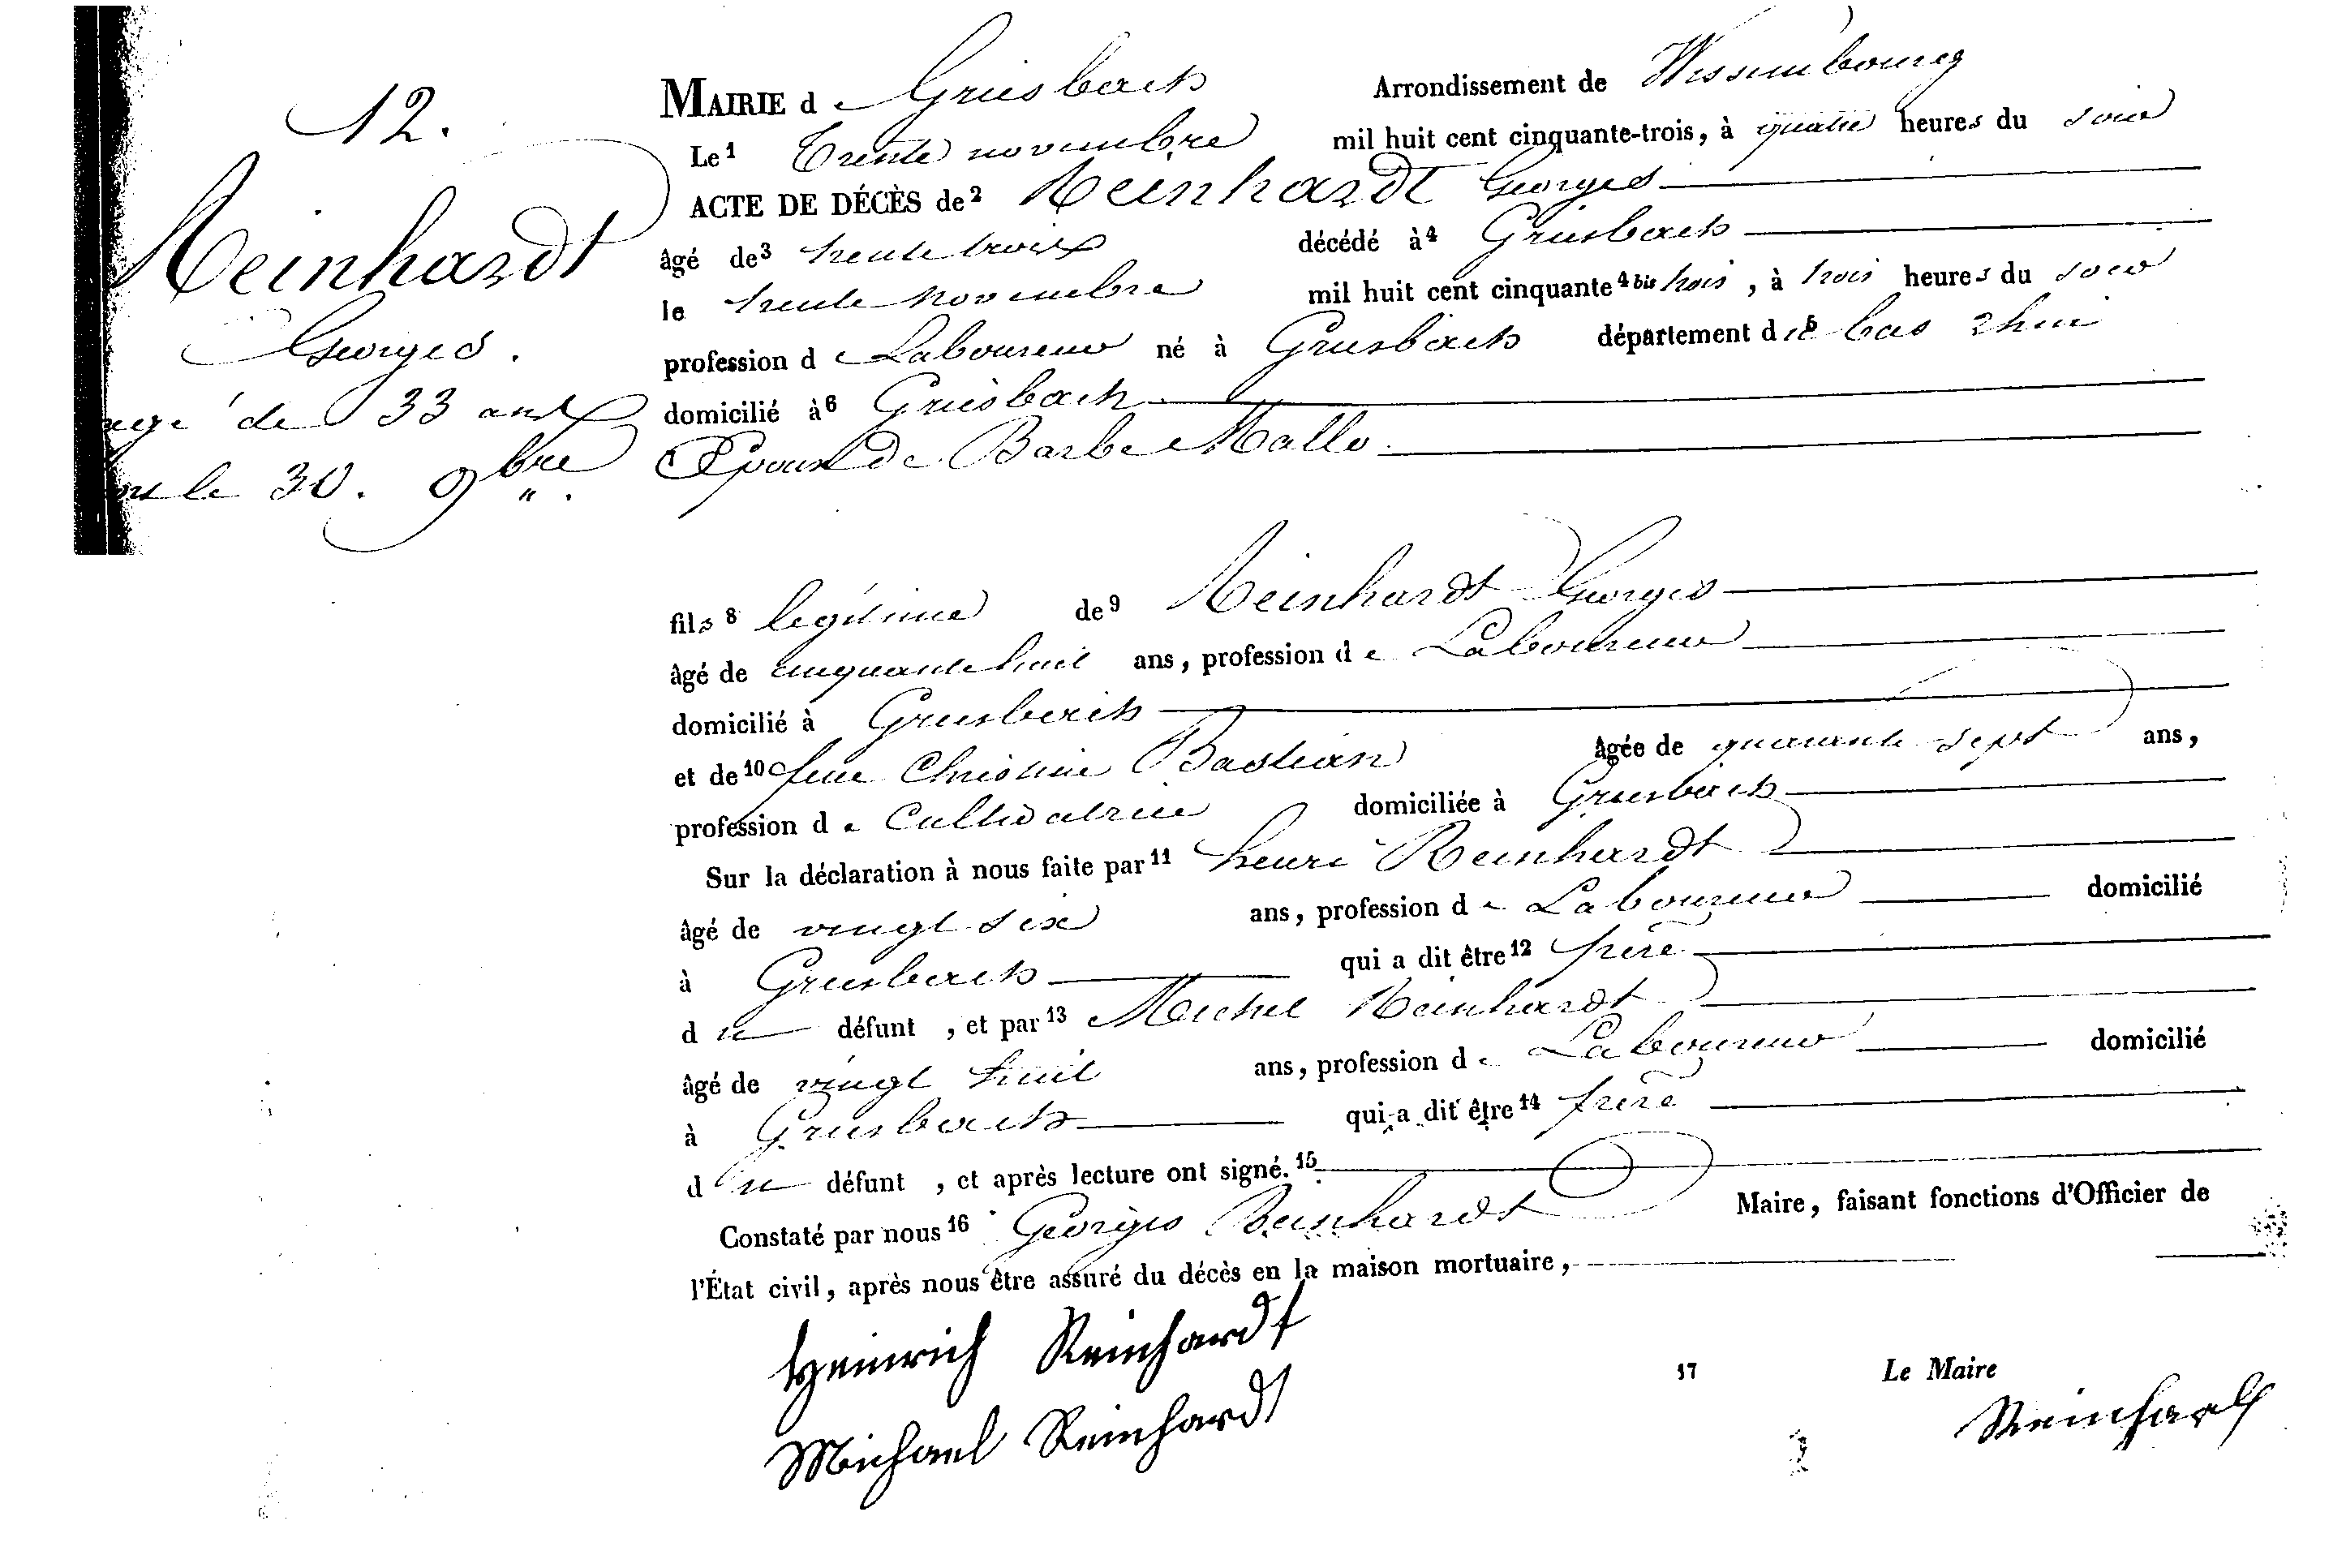 12.
Reinhardt
Georges.
agé de 33 ans
le 30. 9bre
MAIRIE de Griesbach Arrondissement de Wissembourg
Le 1 Trente novembre mil huit cent cinquante-trois, à quatre heures du soir
ACTE DE DÉCÈS de 2 Reinhardt Georges
âgé de 3 trente trois décédé à 4 Griesbach
le trente novembre mil huit cent cinquante 4 bis trois, à trois heures du soir
profession de Laboureur né à Griesbach département du 5 bas rhin
domicilié à 6 Griesbach
Epoux de Barbe Mallo
fils 8 legitime de 9 Reinhardt Georges
âgé de cinquante huit ans, profession de Laboureur
domicilié à Griesbach
et de 10 feue Christine Bastian âgée de quarante sept ans,
profession de Cultivatrice domiciliée à Griesbach
Sur la déclaration à nous faite par 11 henri Reinhardt
âgé de vingt six ans, profession de Laboureur domicilié
à Griesbach qui a dit être 12 frère
du défunt, et par 13 Michel Reinhardt
âgé de vingt huit ans, profession de Laboureur domicilié
à Griesbach qui a dit être 14 frère
du défunt, et après lecture ont signé. 15
Constaté par nous 16 Georges Reinhardt Maire, faisant fonctions d'Officier de
l'État civil, après nous être assuré du décès en la maison mortuaire,
Heinrich Reinhardt
17 Le Maire
Michael Reinhardt
Reinhardt